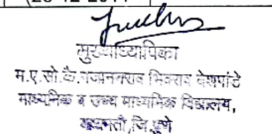 मुख्याध्यापिका
म.ए.सो.कै.गजाननराव भिवराव देशपांडे
माध्यमिक व उच्च माध्यमिक विद्यालय,
बारामती,जि.पुणे